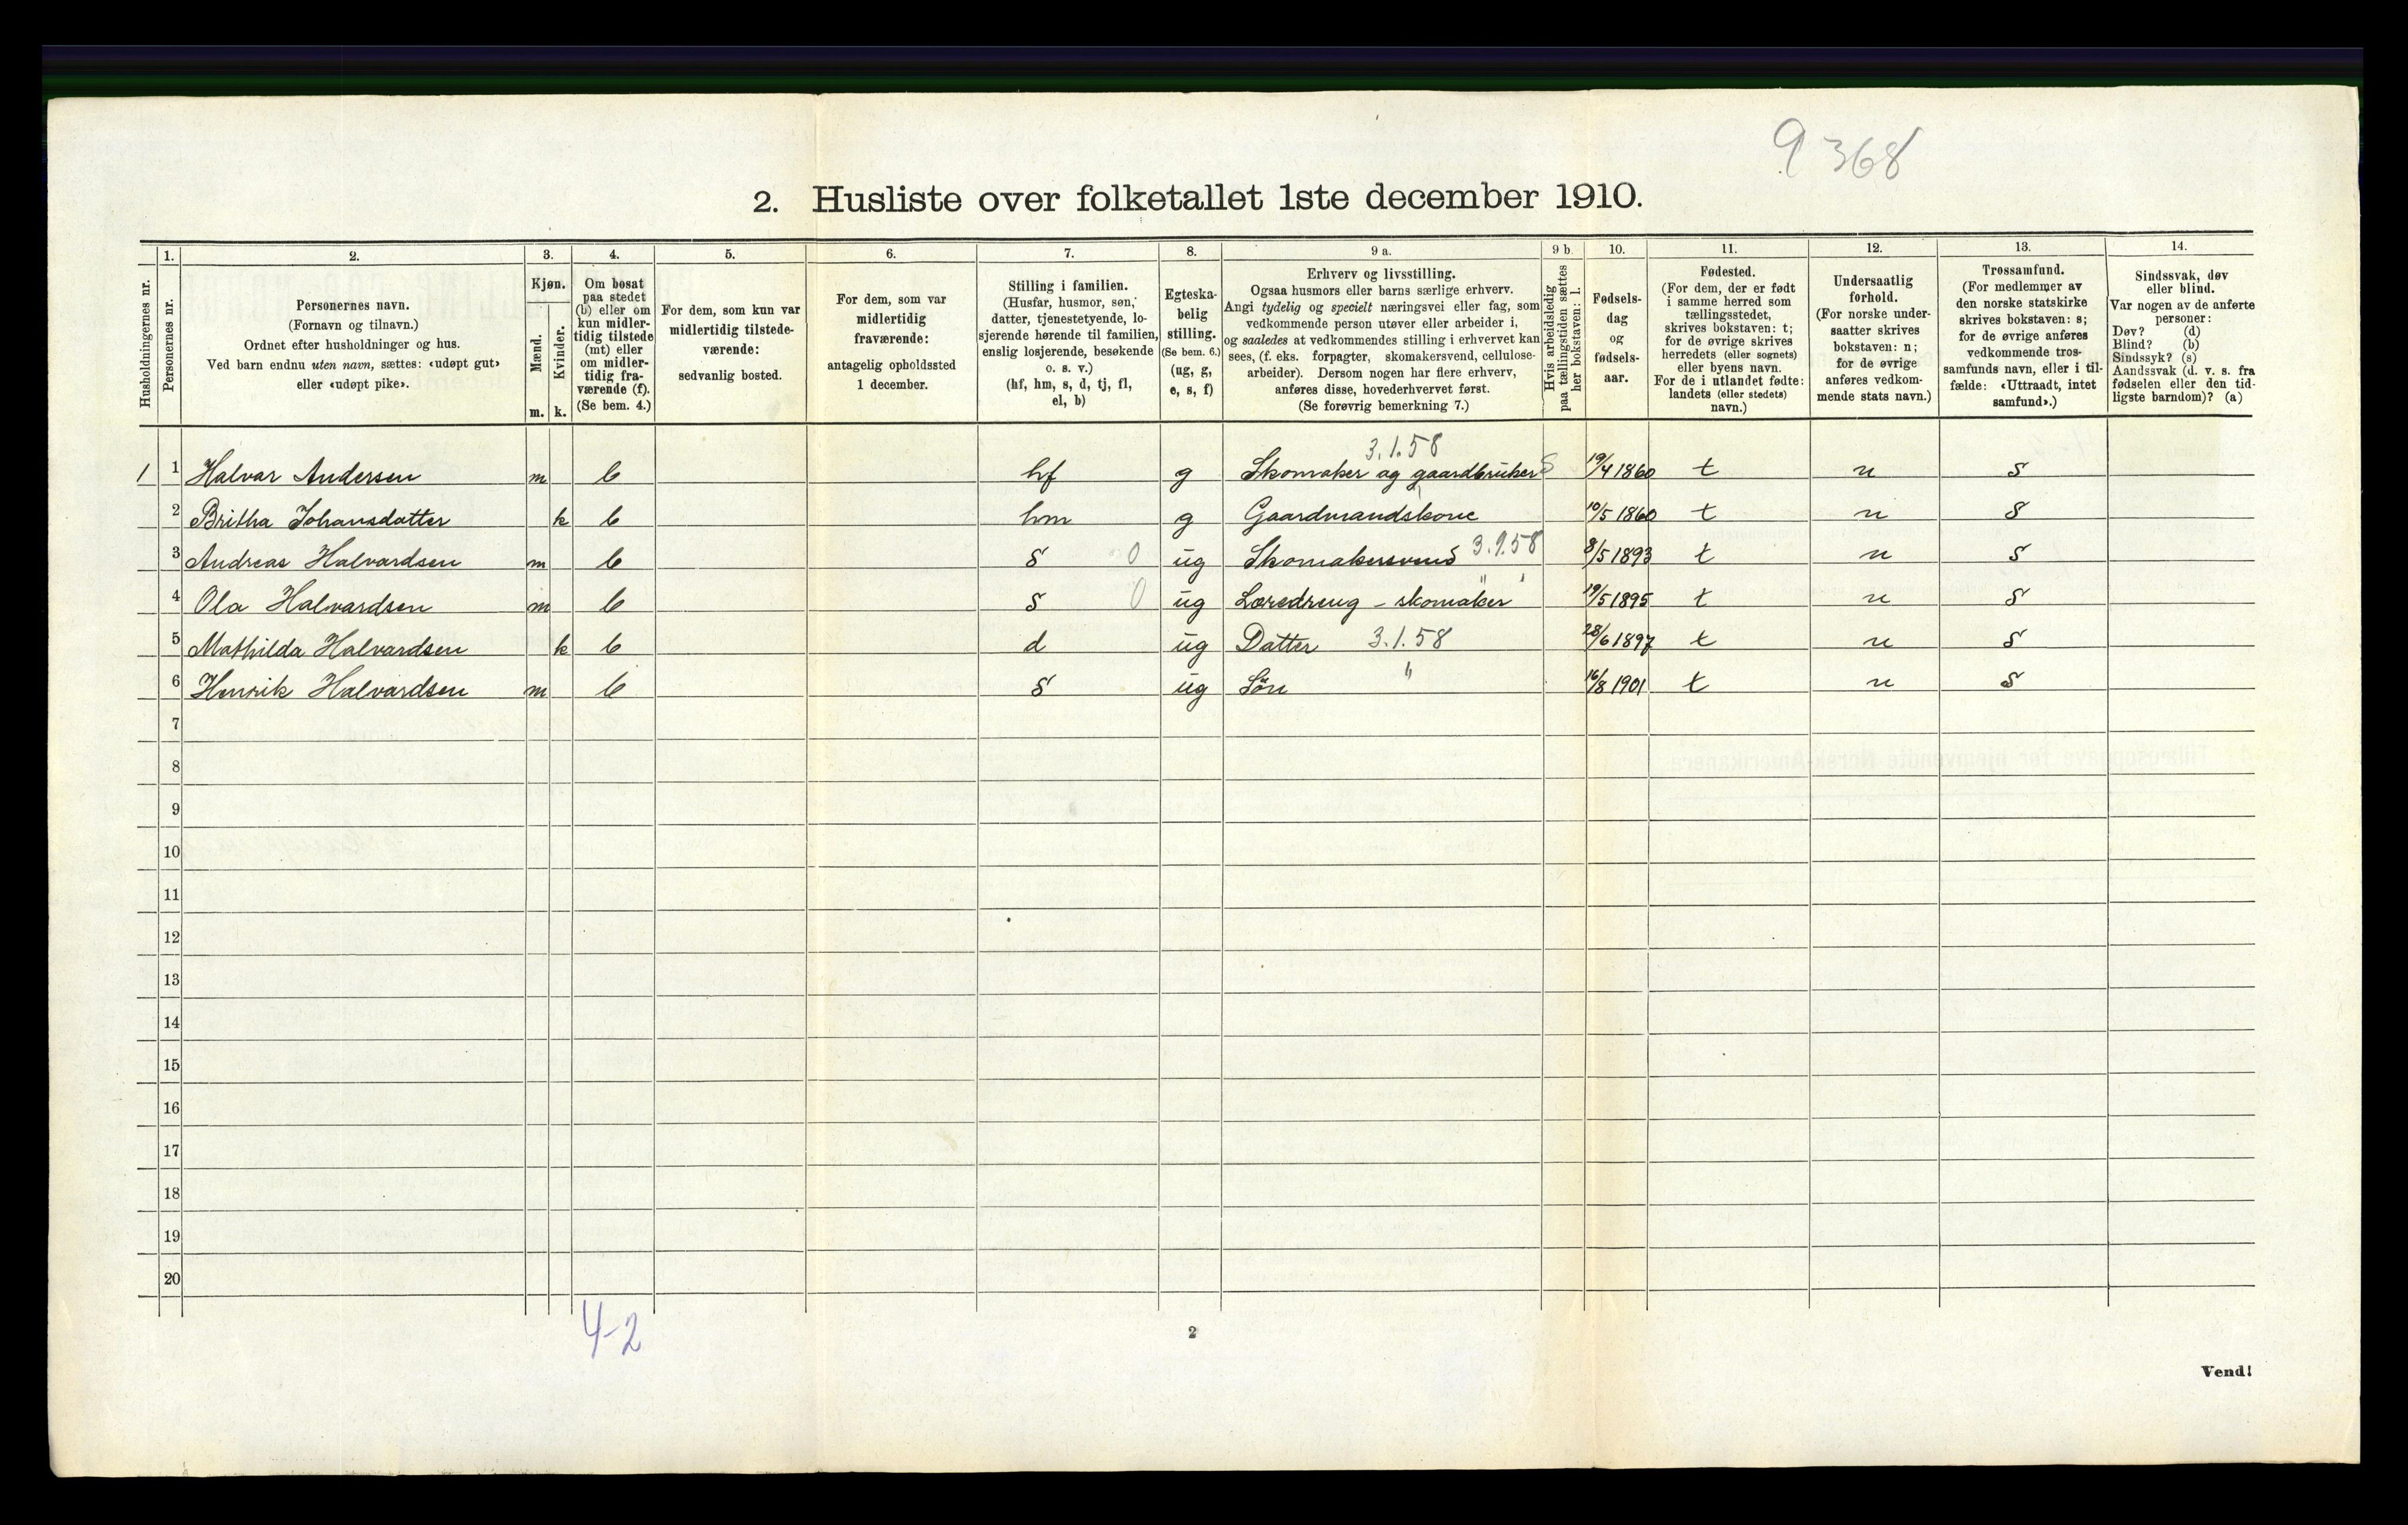 9 368
2. Husliste over folketallet 1ste december 1910.
Husholdningernes nr.
1.
Personernes nr.
2.
Personernes navn.
(Fornavn og tilnavn.)
Ordnet efter husholdninger og hus.
Ved barn endnu uten navn, sættes: «udøpt gut»
eller «udøpt pike».
3.
Kjøn.
Mænd.
Kvinder.
m. k.
4.
Om bosat
paa stedet
(b) eller om
kun midler-
tidig tilstede
(mt) eller
om midler-
tidig fra-
værende (f).
(Se bem. 4.)
5.
For dem, som kun var
midlertidig tilstede-
værende:
sedvanlig bosted.
6.
For dem, som var
midlertidig
fraværende:
antagelig opholdssted
1 december.
7.
Stilling i familien.
(Husfar, husmor, søn,
datter, tjenestetyende, lo-
sjerende hørende til familien,
enslig losjerende, besøkende
o. s. v.)
(hf, hm, s, d, tj, fl,
el, b)
8.
Egteska-
belig
stilling.
(Se bem. 6.)
(ug, g,
e, s, f)
9 a.
Erhverv og livsstilling.
Ogsaa husmors eller barns særlige erhverv.
Angi tydelig og specielt næringsvei eller fag, som
vedkommende person utøver eller arbeider i,
og saaledes at vedkommendes stilling i erhvervet kan
sees, (f. eks. forpagter, skomakersvend, cellulose-
arbeider). Dersom nogen har flere erhverv,
anføres disse, hovederhvervet først.
(Se forøvrig bemerkning 7.)
9 b.
Hvis arbeidsledig
paa tællingstiden sættes
her bokstaven: l.
10.
Fødsels-
dag
og
fødsels-
aar.
11.
Fødested.
(For dem, der er født
i samme herred som
tællingsstedet,
skrives bokstaven: t;
for de øvrige skrives
herredets (eller sognets)
eller byens navn.
For de i utlandet fødte:
landets (eller stedets)
navn.)
12.
Undersaatlig
forhold.
(For norske under-
saatter skrives
bokstaven: n;
for de øvrige
anføres vedkom-
mende stats navn.)
13.
Trossamfund.
(For medlemmer av
den norske statskirke
skrives bokstaven: s;
for de øvrige anføres
vedkommende tros-
samfunds navn, eller i til-
fælde: «Uttraadt, intet
samfund».)
14.
Sindssvak, døv
eller blind.
Var nogen av de anførte
personer:
Døv? (d)
Blind? (b)
Sindssyk? (s)
Aandssvak (d. v. s. fra
fødselen eller den tid-
ligste barndom)? (a)
3.1.58
1 1 Halvar Andersen m b hf g Skomaker og gaardbruker S 19/4 1860 t n s
2 Britha Johansdatter k b hm g Gaardmandskone 10/5 1860 t n s
3 Andreas Halvardsen m b s 0 ug Skomakersvend 3.1.58 8/5 1893 t n s
4 Ola Halvardsen m b s 0 ug Læredreng - skomaker " 19/5 1895 t n s
5 Mathilda Halvardsen k b d ug Datter 3.1.58 28/6 1897 t n s
6 Henrik Halvardsen m b s ug Sön " 16/8 1901 t n s
7
8
9
10
11
12
13
14
15
16
17
18
19
20
4-2
2
Vend!